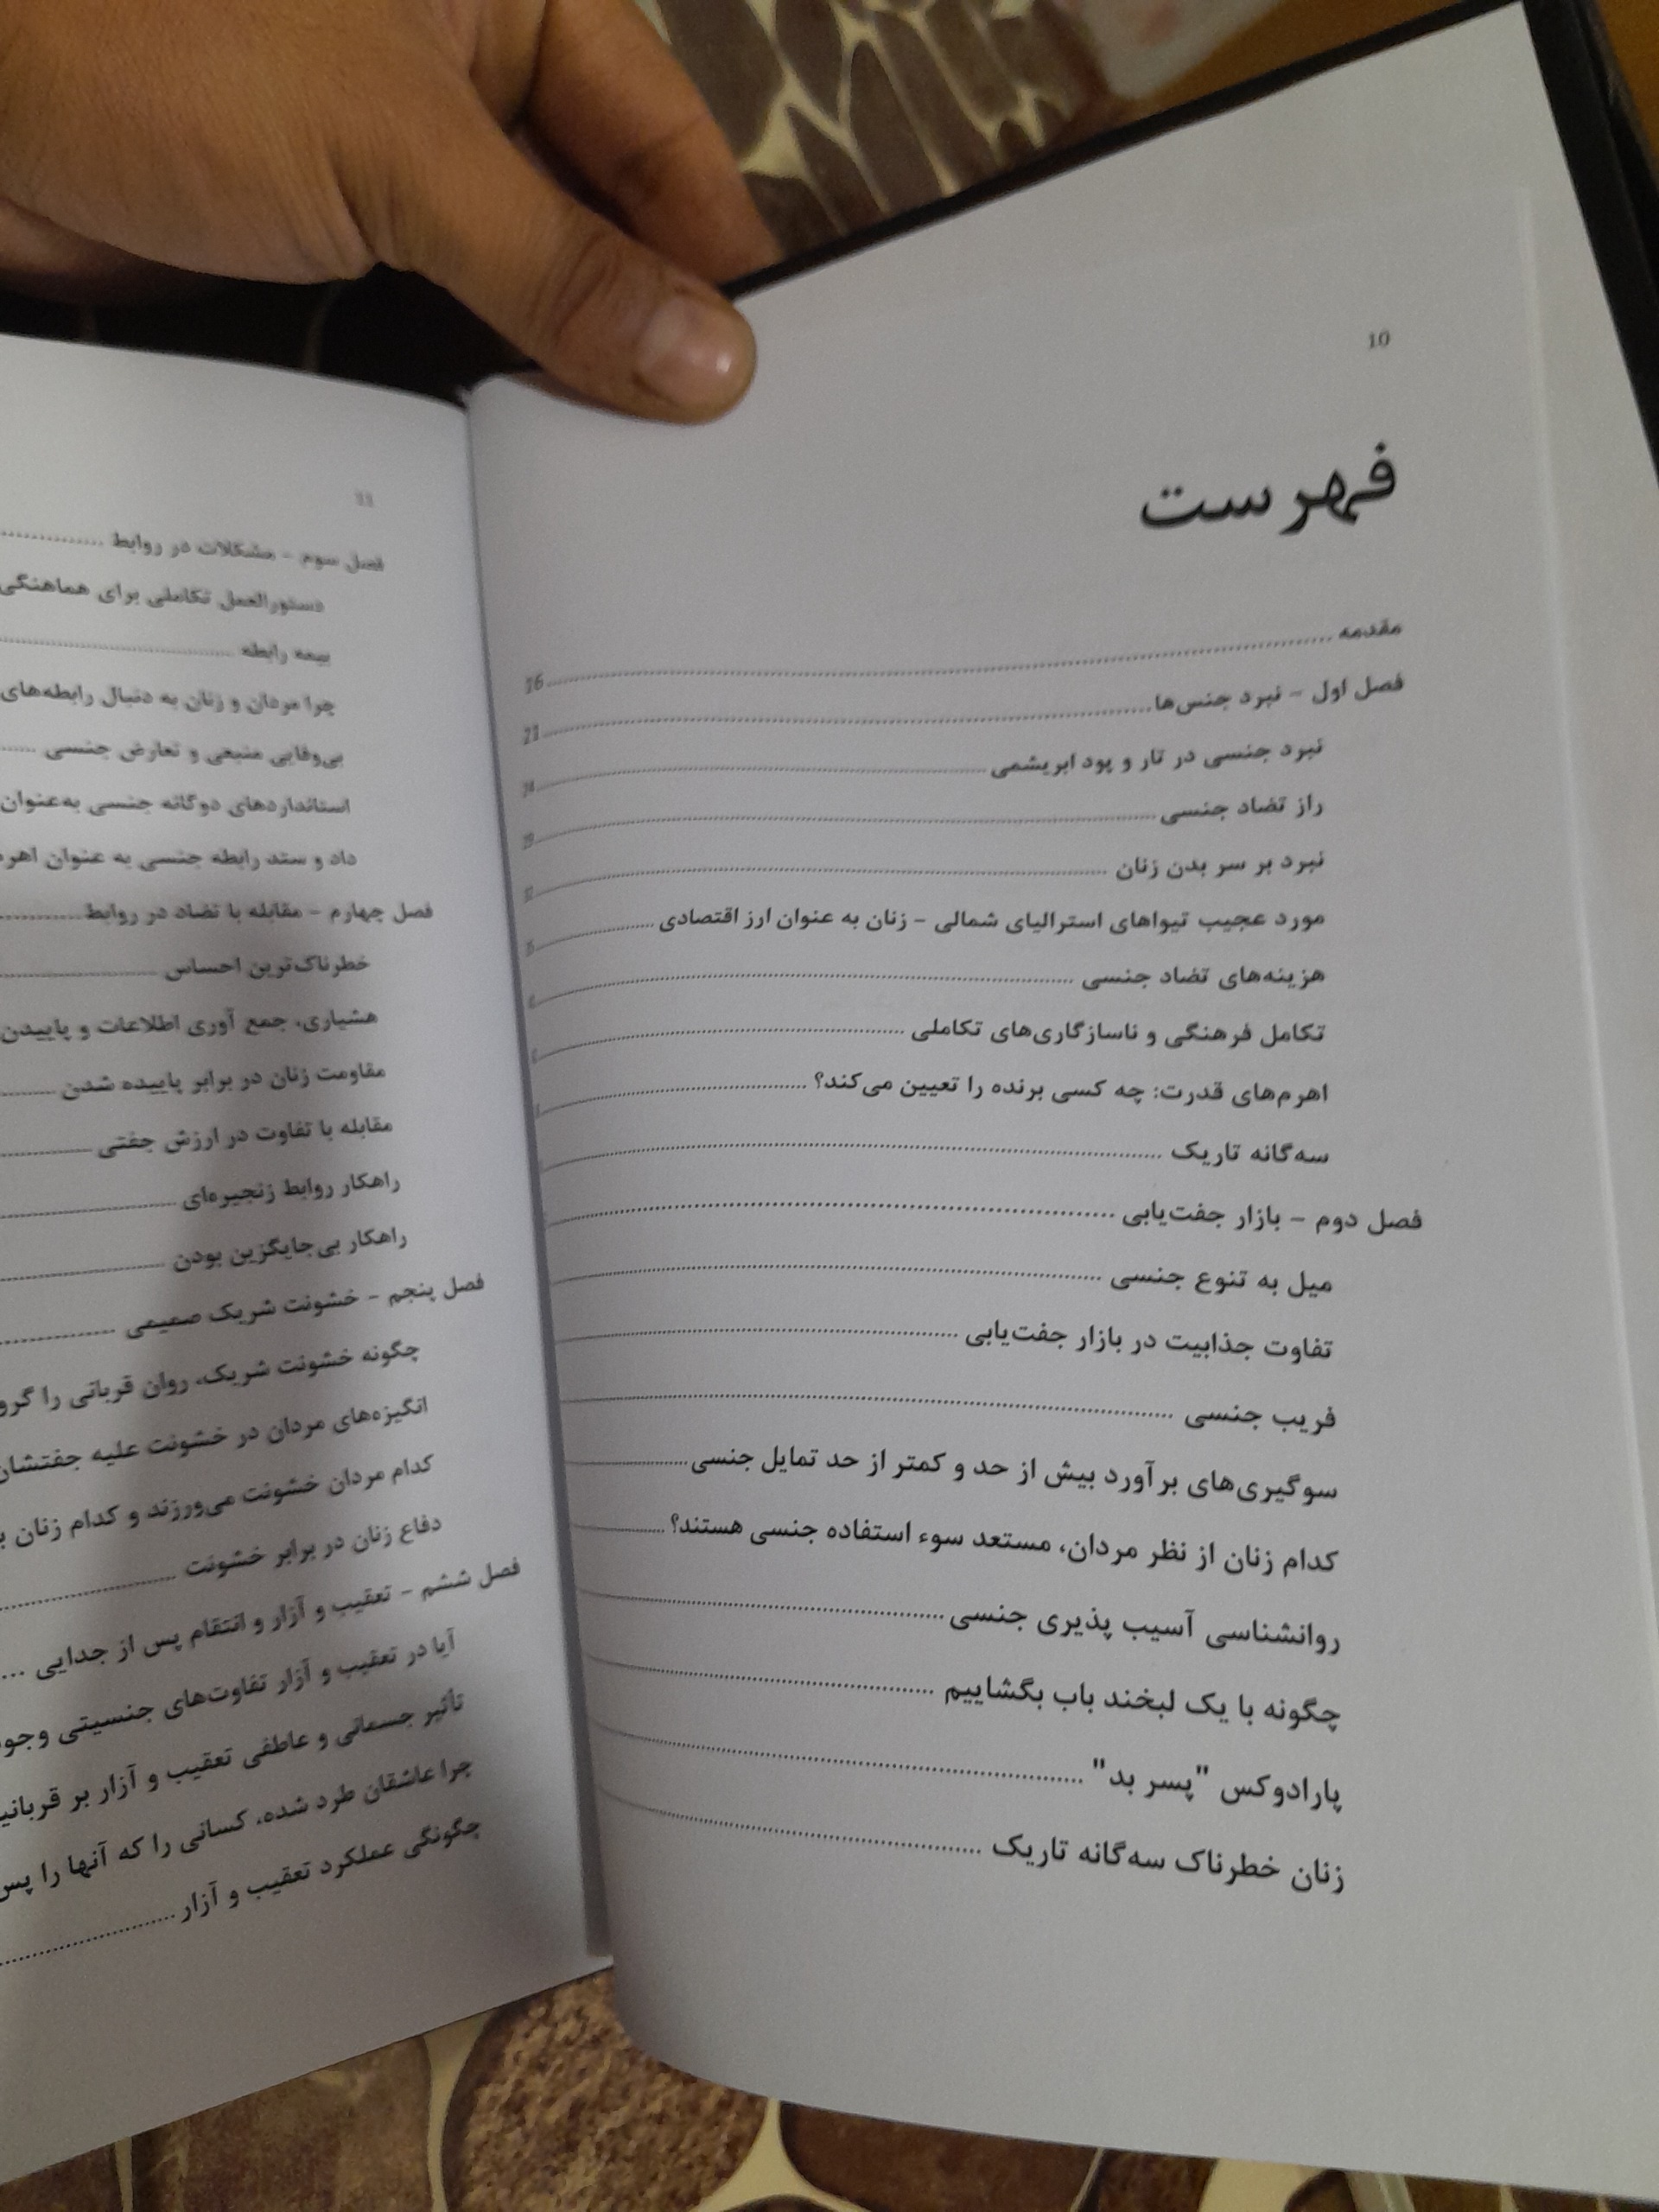 10
فهرست
مقدمه ........ 16
فصل اول – نبرد جنس‌ها ........ 21
نبرد جنسی در تار و پود ابریشمی ........
راز تضاد جنسی ........
نبرد بر سر بدن زنان ........
مورد عجیب تیواهای استرالیای شمالی – زنان به عنوان ارز اقتصادی ........
هزینه‌های تضاد جنسی ........
تکامل فرهنگی و ناسازگاری‌های تکاملی ........
اهرم‌های قدرت: چه کسی برنده را تعیین می‌کند؟ ........
سه‌گانه تاریک ........
فصل دوم – بازار جفت‌یابی ........
میل به تنوع جنسی ........
تفاوت جذابیت در بازار جفت‌یابی ........
فریب جنسی ........
سوگیری‌های برآورد بیش از حد و کمتر از حد تمایل جنسی ........
کدام زنان از نظر مردان، مستعد سوء استفاده جنسی هستند؟ ........
روانشناسی آسیب پذیری جنسی ........
چگونه با یک لبخند باب بگشاییم ........
پارادوکس "پسر بد" ........
زنان خطرناک سه‌گانه تاریک ........
11
فصل سوم – مشکلات در روابط ........
دستورالعمل تکاملی برای هماهنگی
بیمه رابطه ........
چرا مردان و زنان به دنبال رابطه‌های
بی‌وفایی منبعی و تعارض جنسی ........
استانداردهای دوگانه جنسی به‌عنوان
داد و ستد رابطه جنسی به عنوان
فصل چهارم – مقابله با تضاد در روابط ........
خطرناک‌ترین احساس ........
هشیاری، جمع آوری اطلاعات و پاییدن
مقاومت زنان در برابر پاییده شدن ........
مقابله با تفاوت در ارزش جفتی ........
راهکار روابط زنجیره‌ای ........
راهکار بی‌جایگزین بودن ........
فصل پنجم – خشونت شریک صمیمی ........
چگونه خشونت شریک، روان قربانی را
انگیزه‌های مردان در خشونت علیه جفتشان
کدام مردان خشونت می‌ورزند و کدام زنان
دفاع زنان در برابر خشونت ........
فصل ششم – تعقیب و آزار و انتقام پس از جدایی ...
آیا در تعقیب و آزار تفاوت‌های جنسیتی
تأثیر جسمانی و عاطفی تعقیب و آزار بر
چرا عاشقان طرد شده، کسانی را که آنها را
چگونگی عملکرد تعقیب و آزار ........